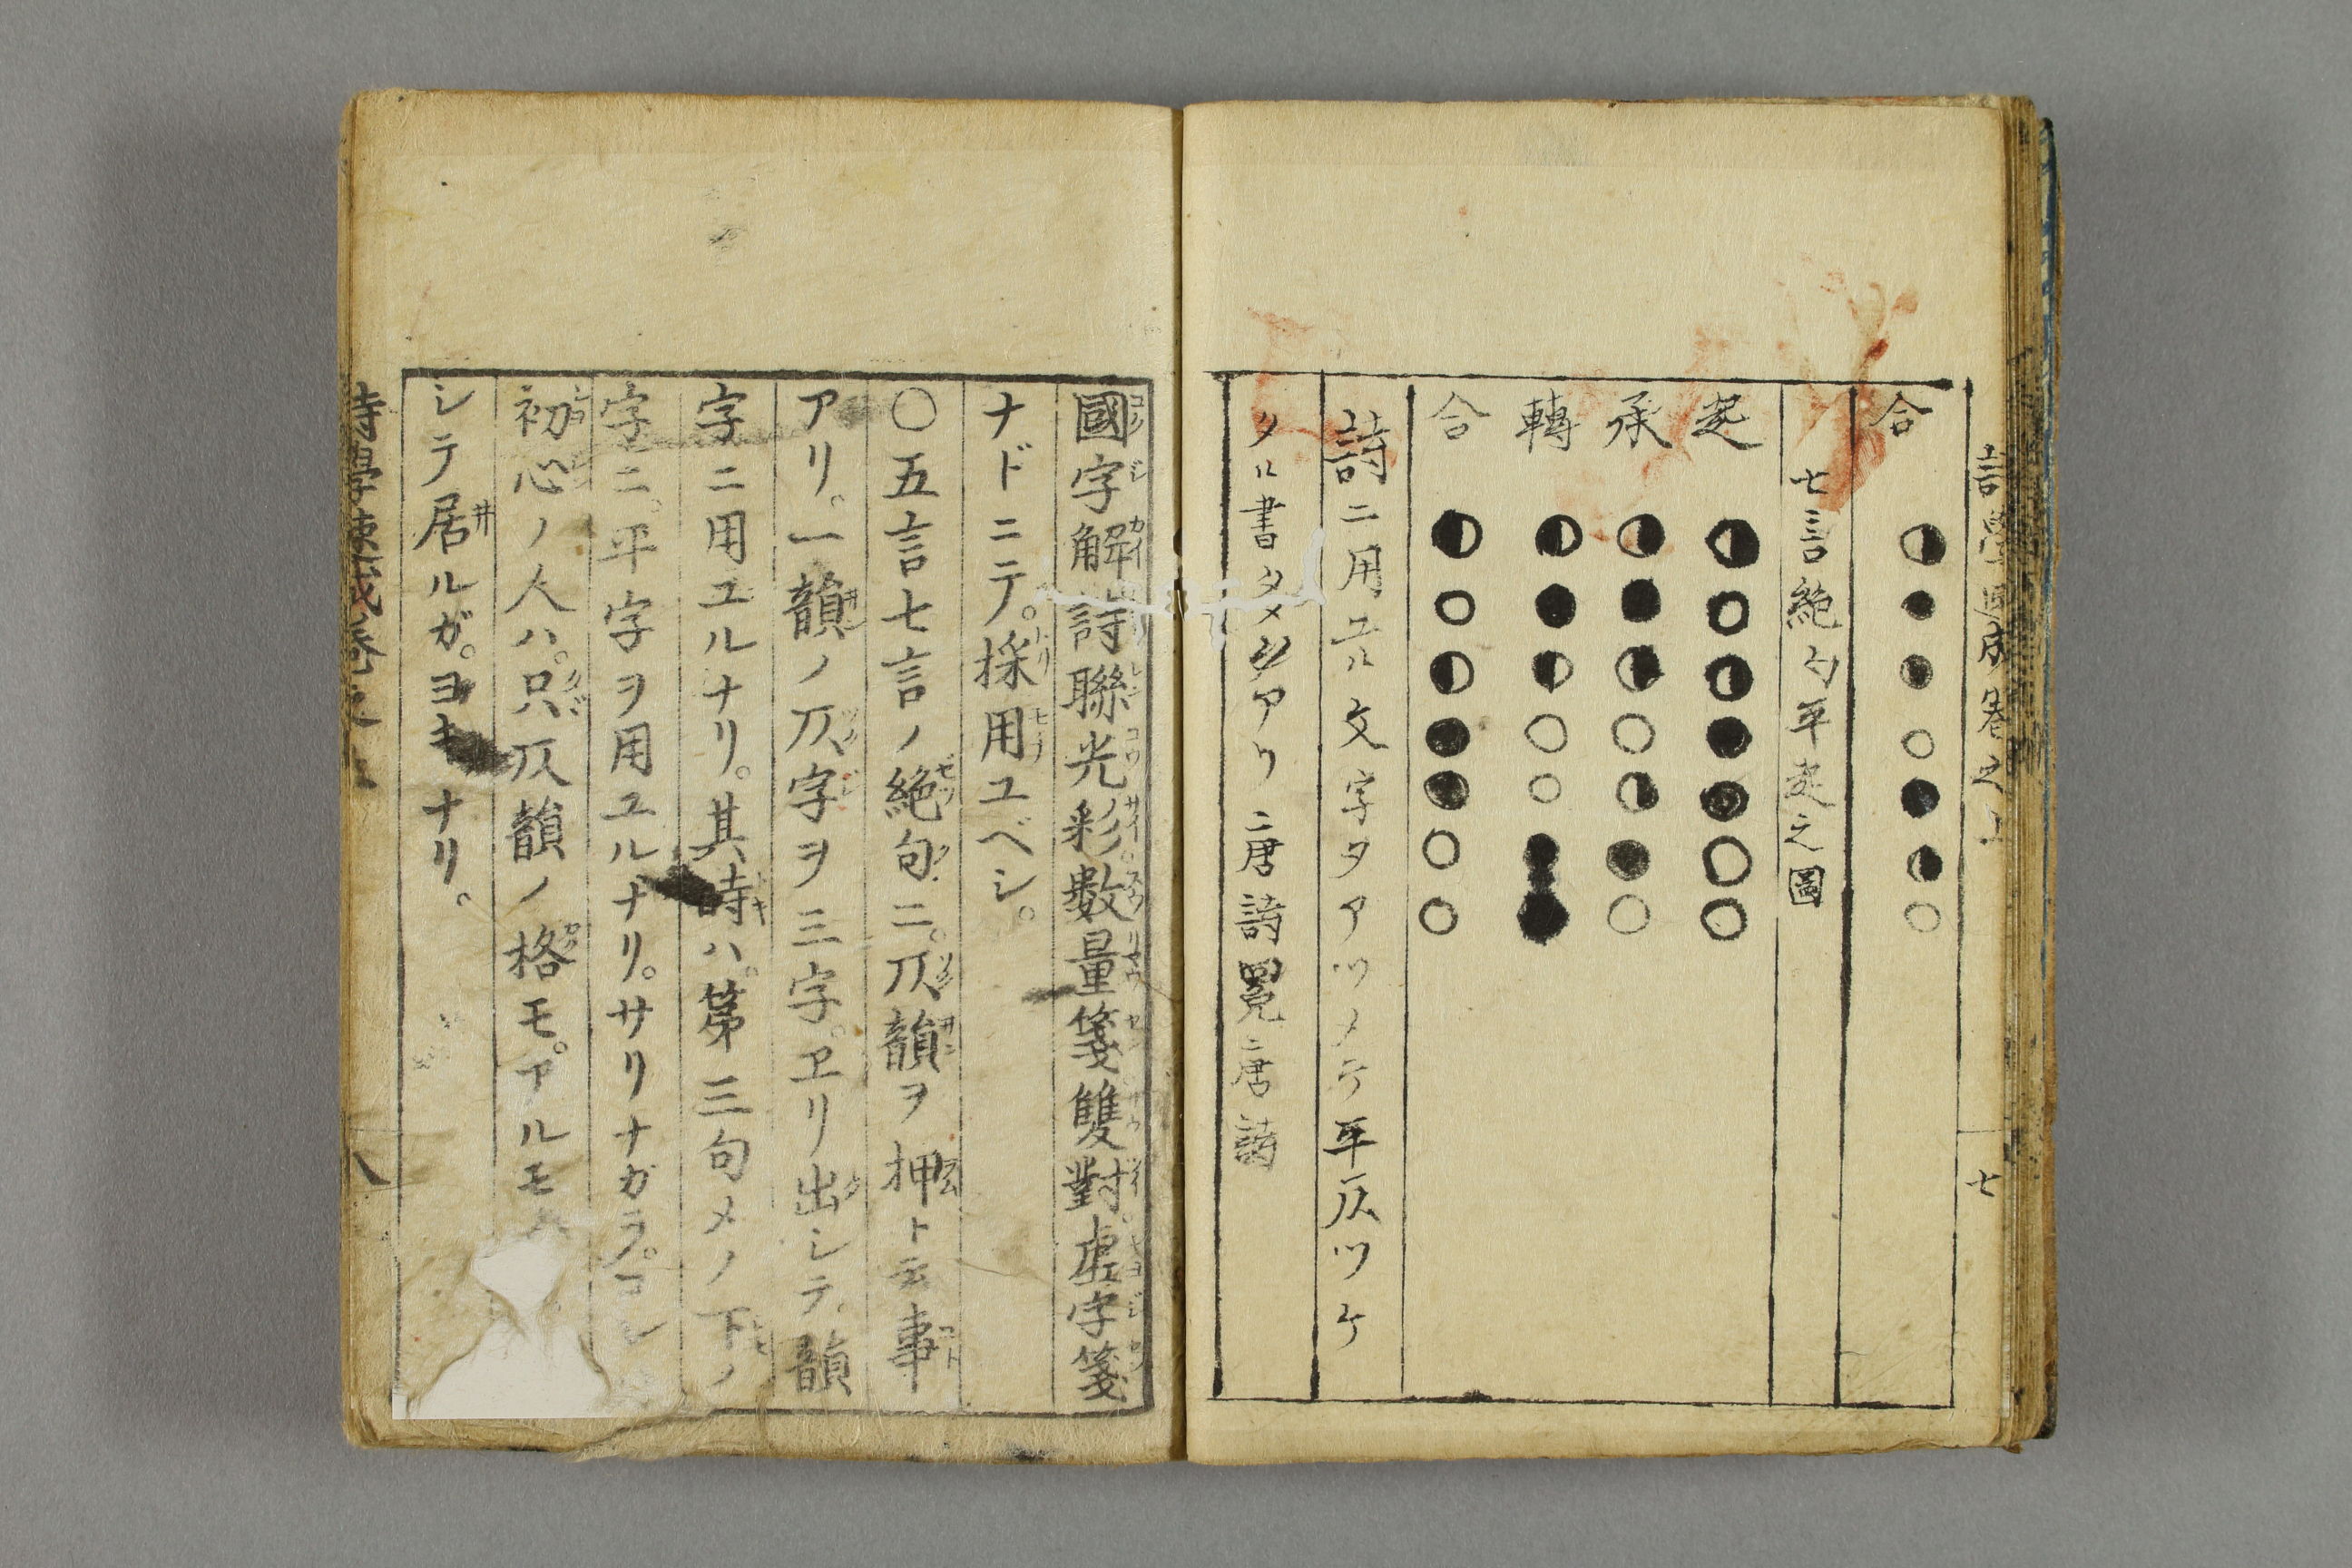 合
七言絶句平起之圖
起
承
轉
合
詩ニ用ユル文字タアツメテ平仄ツケ
タル書タメ アリ 唐詩 唐詩
七
國字解詩聯光彩數量箋雙對虚字箋
ナドニテ。採用ユベシ。
○五言七言ノ絶句ニ。仄韻ヲ押ト云事
アリ。一韻ノ仄字ヲ三字。ヱリ出シテ。韻
字ニ用ユルナリ。其時ハ。第三句メノ下ノ
字ニ。平字ヲ用ユルナリ。サリナガラ。コレ
初心ノ人ハ。只仄韻ノ格モ。アルモ
シテ居ルガ。ヨキナリ。
八